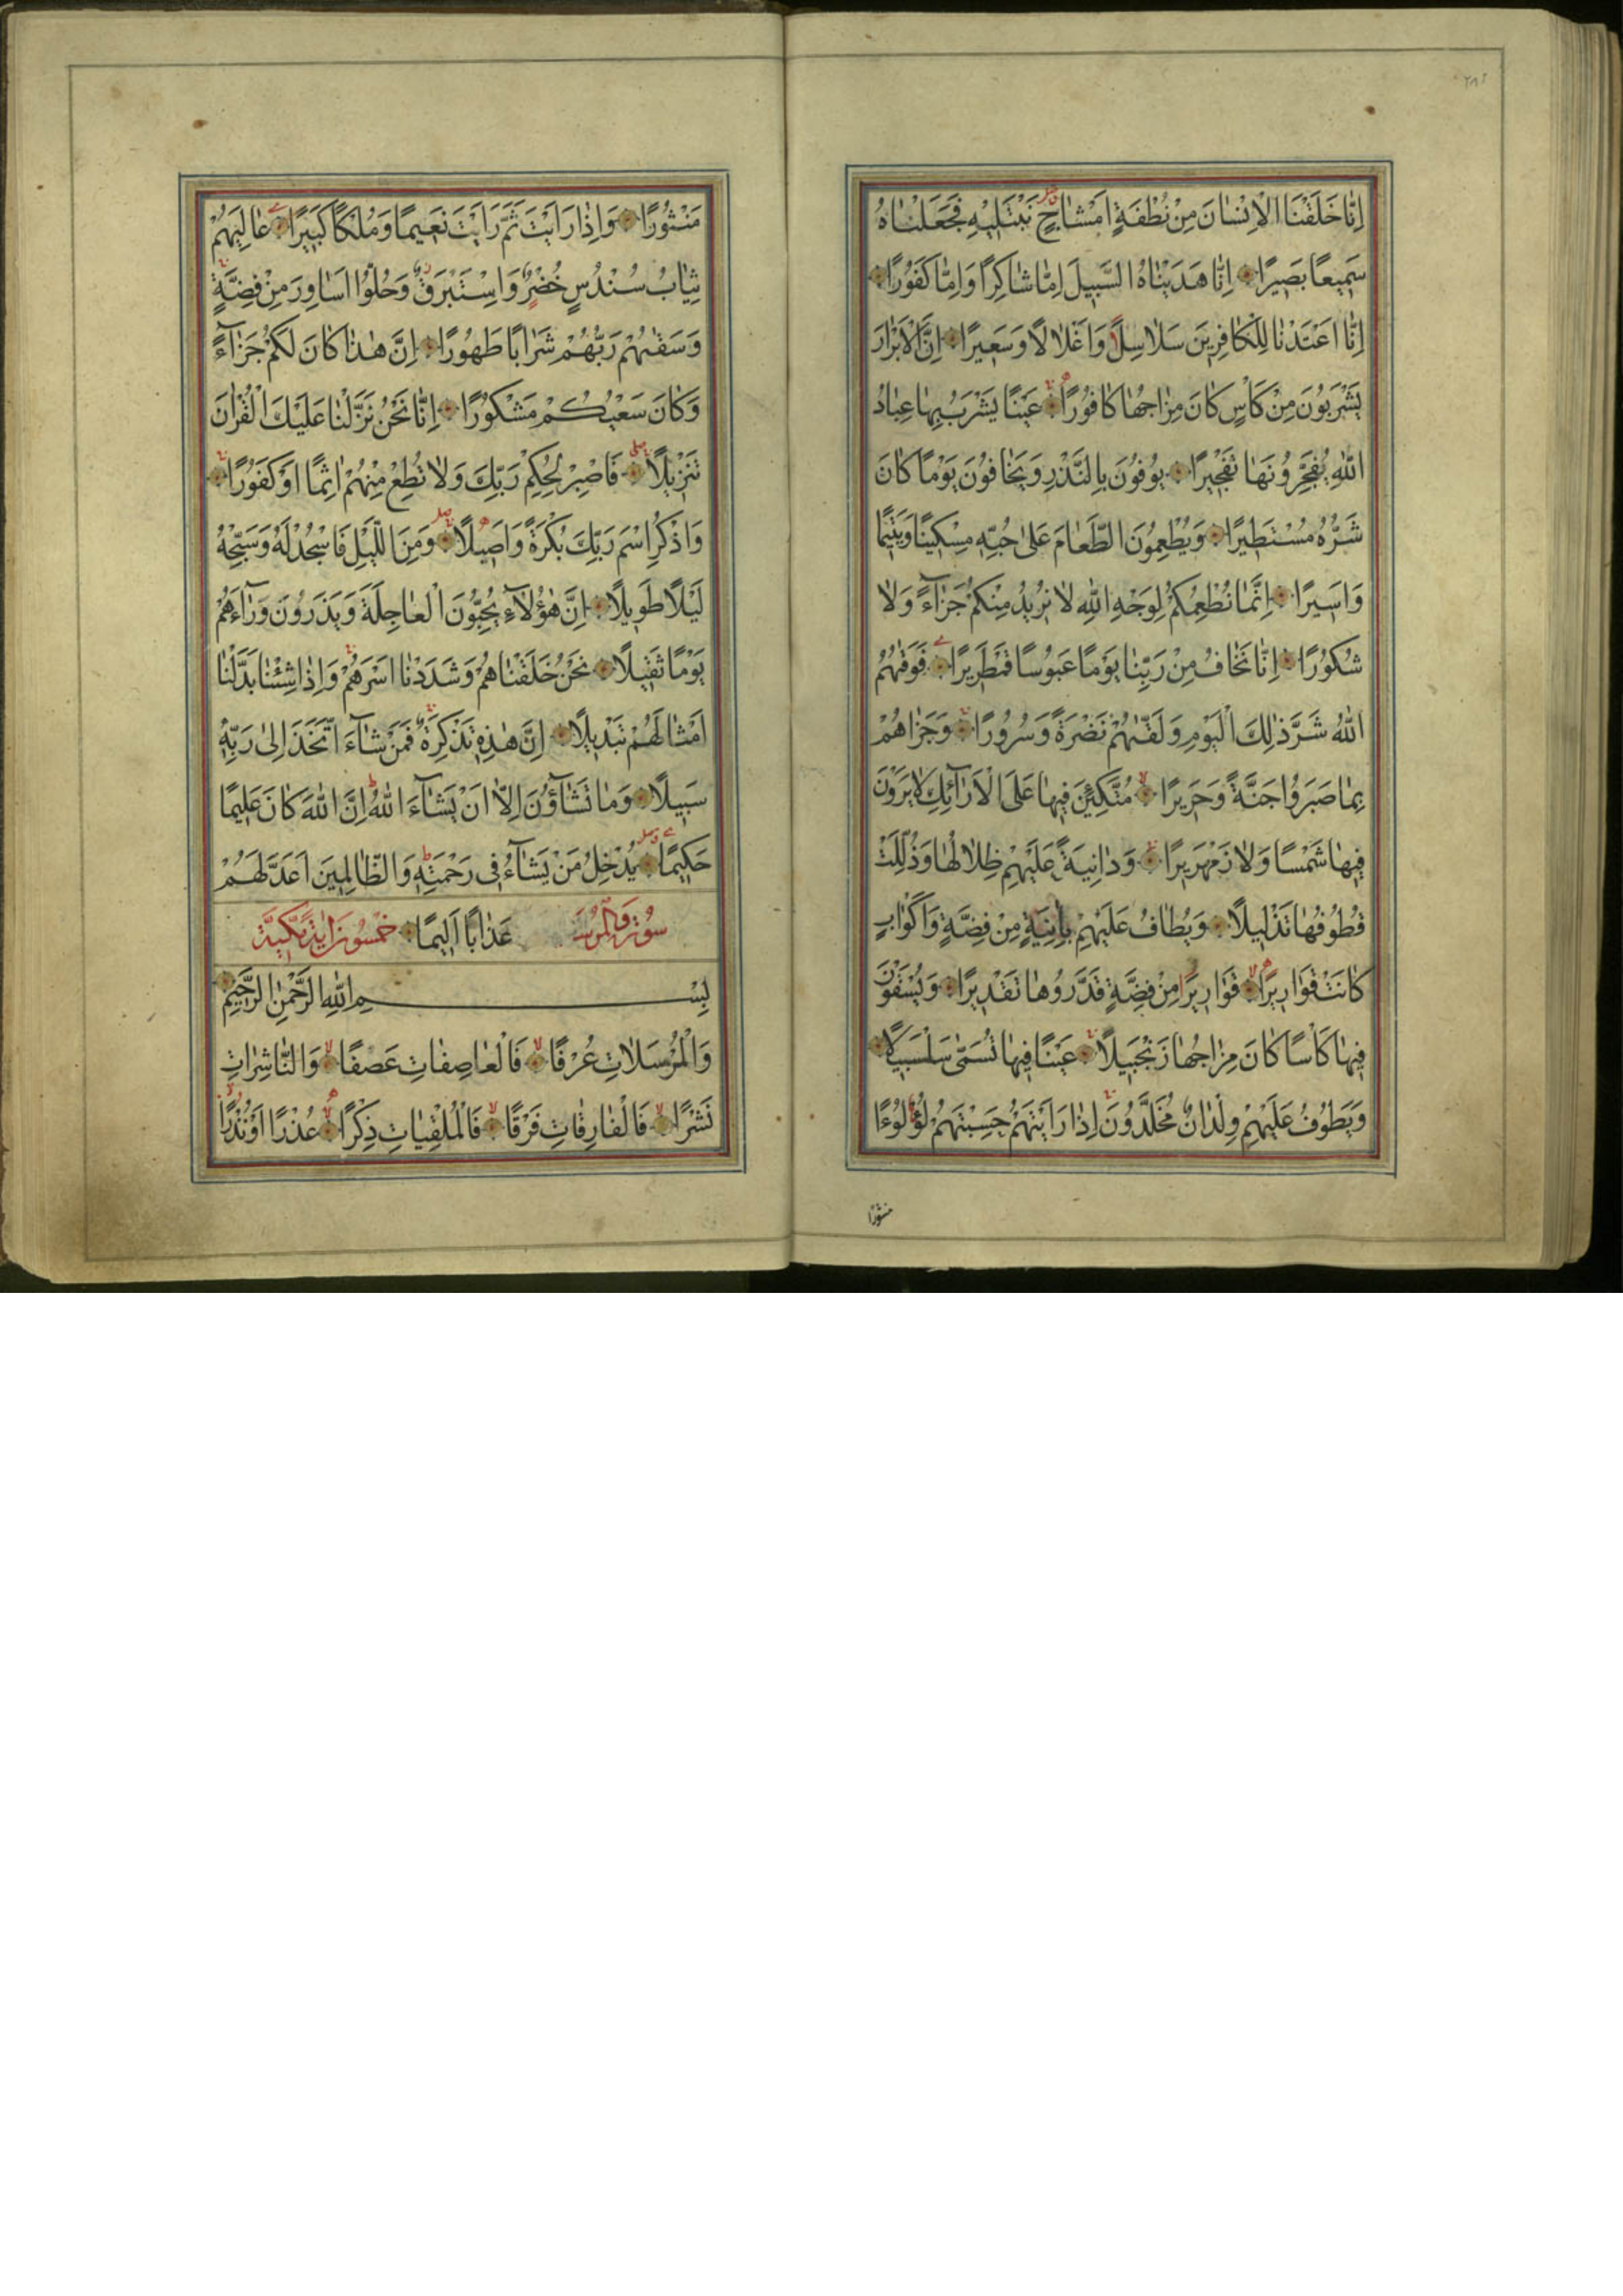 ٢٨٢
اِنّٰا خَلَقْنَا الْاِنْسٰانَ مِنْ نُطْفَةٍ اَمْشٰاجٍ نَبْتَلِيْهِ فَجَعَلْنٰاهُ
سَمِيْعًا بَصِيْرًا اِنّٰا هَدَيْنٰاهُ السَّبِيْلَ اِمّٰا شٰاكِرًا وَاِمّٰا كَفُوْرًا
اِنّٰا اَعْتَدْنٰا لِلْكٰافِرِيْنَ سَلٰاسِلًا وَاَغْلٰالًا وَسَعِيْرًا اِنَّ الْاَبْرٰارَ
يَشْرَبُوْنَ مِنْ كَاْسٍ كٰانَ مِزٰاجُهٰا كٰافُوْرًا عَيْنًا يَشْرَبُ بِهٰا عِبٰادُ
اللّٰهِ يُفَجِّرُوْنَهٰا تَفْجِيْرًا يُوْفُوْنَ بِالنَّذْرِ وَيَخٰافُوْنَ يَوْمًا كٰانَ
شَرُّهُ مُسْتَطِيْرًا وَيُطْعِمُوْنَ الطَّعٰامَ عَلٰى حُبِّهٖ مِسْكِيْنًا وَيَتِيْمًا
وَاَسِيْرًا اِنَّمٰا نُطْعِمُكُمْ لِوَجْهِ اللّٰهِ لٰا نُرِيْدُ مِنْكُمْ جَزٰآءً وَلٰا
شُكُوْرًا اِنّٰا نَخٰافُ مِنْ رَبِّنٰا يَوْمًا عَبُوْسًا قَمْطَرِيْرًا فَوَقٰيهُمُ
اللّٰهُ شَرَّ ذٰلِكَ الْيَوْمِ وَلَقّٰيهُمْ نَضْرَةً وَسُرُوْرًا وَجَزٰاهُمْ
بِمٰا صَبَرُوْا جَنَّةً وَحَرِيْرًا مُتَّكِئِيْنَ فِيْهٰا عَلَى الْاَرٰآئِكِ لٰا يَرَوْنَ
فِيْهٰا شَمْسًا وَلٰا زَمْهَرِيْرًا وَدٰانِيَةً عَلَيْهِمْ ظِلٰالُهٰا وَذُلِّلَتْ
قُطُوْفُهٰا تَذْلِيْلًا وَيُطٰافُ عَلَيْهِمْ بِاٰنِيَةٍ مِنْ فِضَّةٍ وَاَكْوٰابٍ
كٰانَتْ قَوٰارِيْرًا قَوٰارِيْرًا مِنْ فِضَّةٍ قَدَّرُوْهٰا تَقْدِيْرًا وَيُسْقَوْنَ
فِيْهٰا كَاْسًا كٰانَ مِزٰاجُهٰا زَنْجَبِيْلًا عَيْنًا فِيْهٰا تُسَمّٰى سَلْسَبِيْلًا
وَيَطُوْفُ عَلَيْهِمْ وِلْدٰانٌ مُخَلَّدُوْنَ اِذٰا رَاَيْتَهُمْ حَسِبْتَهُمْ لُؤْلُؤًا
منثورًا
مَنْثُوْرًا وَاِذٰا رَاَيْتَ ثَمَّ رَاَيْتَ نَعِيْمًا وَمُلْكًا كَبِيْرًا عٰالِيَهُمْ
ثِيٰابُ سُنْدُسٍ خُضْرٌ وَاِسْتَبْرَقٌ وَحُلُّوْا اَسٰاوِرَ مِنْ فِضَّةٍ
وَسَقٰيهُمْ رَبُّهُمْ شَرٰابًا طَهُوْرًا اِنَّ هٰذٰا كٰانَ لَكُمْ جَزٰآءً
وَكٰانَ سَعْيُكُمْ مَشْكُوْرًا اِنّٰا نَحْنُ نَزَّلْنٰا عَلَيْكَ الْقُرْاٰنَ
تَنْزِيْلًا فَاصْبِرْ لِحُكْمِ رَبِّكَ وَلٰا تُطِعْ مِنْهُمْ اٰثِمًا اَوْ كَفُوْرًا
وَاذْكُرِ اسْمَ رَبِّكَ بُكْرَةً وَاَصِيْلًا وَمِنَ اللَّيْلِ فَاسْجُدْ لَهُ وَسَبِّحْهُ
لَيْلًا طَوِيْلًا اِنَّ هٰؤُلٰآءِ يُحِبُّوْنَ الْعٰاجِلَةَ وَيَذَرُوْنَ وَرٰآءَهُمْ
يَوْمًا ثَقِيْلًا نَحْنُ خَلَقْنٰاهُمْ وَشَدَدْنٰا اَسْرَهُمْ وَاِذٰا شِئْنٰا بَدَّلْنٰا
اَمْثٰالَهُمْ تَبْدِيْلًا اِنَّ هٰذِهٖ تَذْكِرَةٌ فَمَنْ شٰآءَ اتَّخَذَ اِلٰى رَبِّهٖ
سَبِيْلًا وَمٰا تَشٰآؤُنَ اِلّٰا اَنْ يَشٰآءَ اللّٰهُ اِنَّ اللّٰهَ كٰانَ عَلِيْمًا
حَكِيْمًا يُدْخِلُ مَنْ يَشٰآءُ فِى رَحْمَتِهٖ وَالظّٰالِمِيْنَ اَعَدَّ لَهُمْ
سُوْرَةُ وَالْمُرْسَ عَذٰابًا اَلِيْمًا خَمْسُوْنَ اٰيَةً مَكِّيَّةٌ
بِسْمِ اللّٰهِ الرَّحْمٰنِ الرَّحِيْمِ
وَالْمُرْسَلٰاتِ عُرْفًا فَالْعٰاصِفٰاتِ عَصْفًا وَالنّٰاشِرٰاتِ
نَشْرًا فَالْفٰارِقٰاتِ فَرْقًا فَالْمُلْقِيٰاتِ ذِكْرًا عُذْرًا اَوْ نُذْرًا